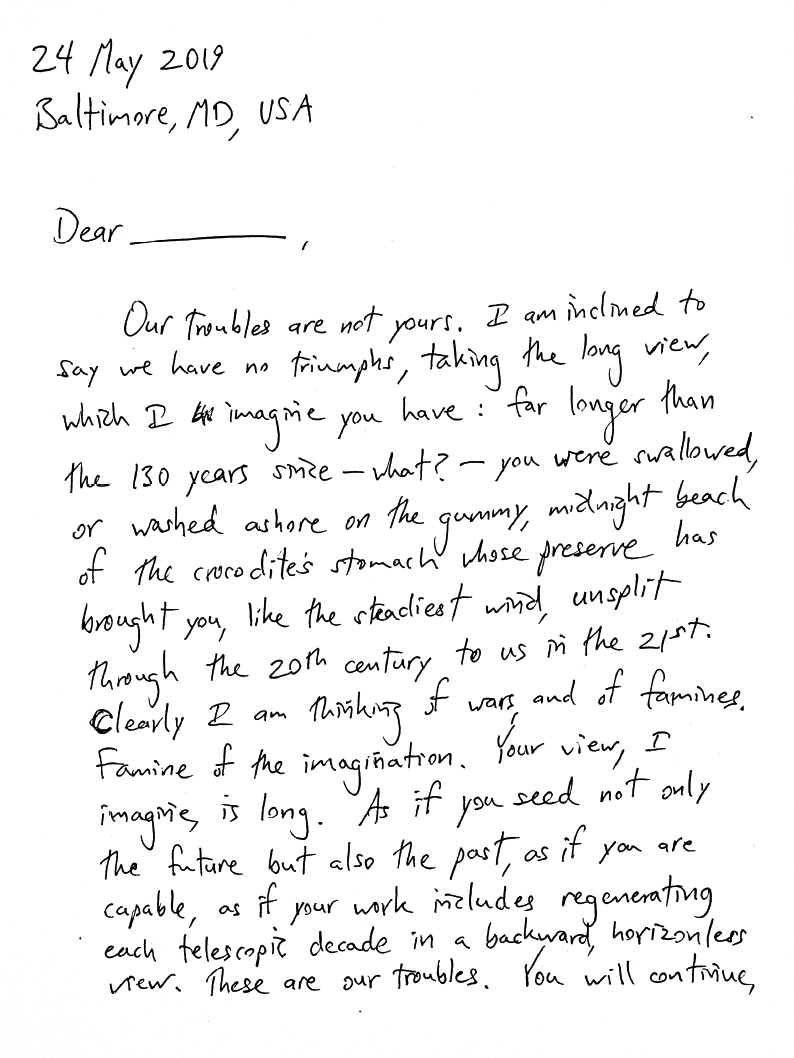 24 May 2019
Baltimore, MD, USA
Dear __________,
Our troubles are not yours. I am inclined to
say we have no triumphs, taking the long view,
which I imagine you have: far longer than
the 130 years since — what? — you were swallowed,
or washed ashore on the gummy, midnight beach
of the crocodile's stomach whose preserve has
brought you, like the steadiest wind, unsplit
through the 20th century to us in the 21st.
Clearly I am thinking of wars, and of famines.
Famine of the imagination. Your view, I
imagine, is long. As if you seed not only
the future but also the past, as if you are
capable, as if your work includes regenerating
each telescopic decade in a backward, horizonless
view. These are our troubles. You will continue,